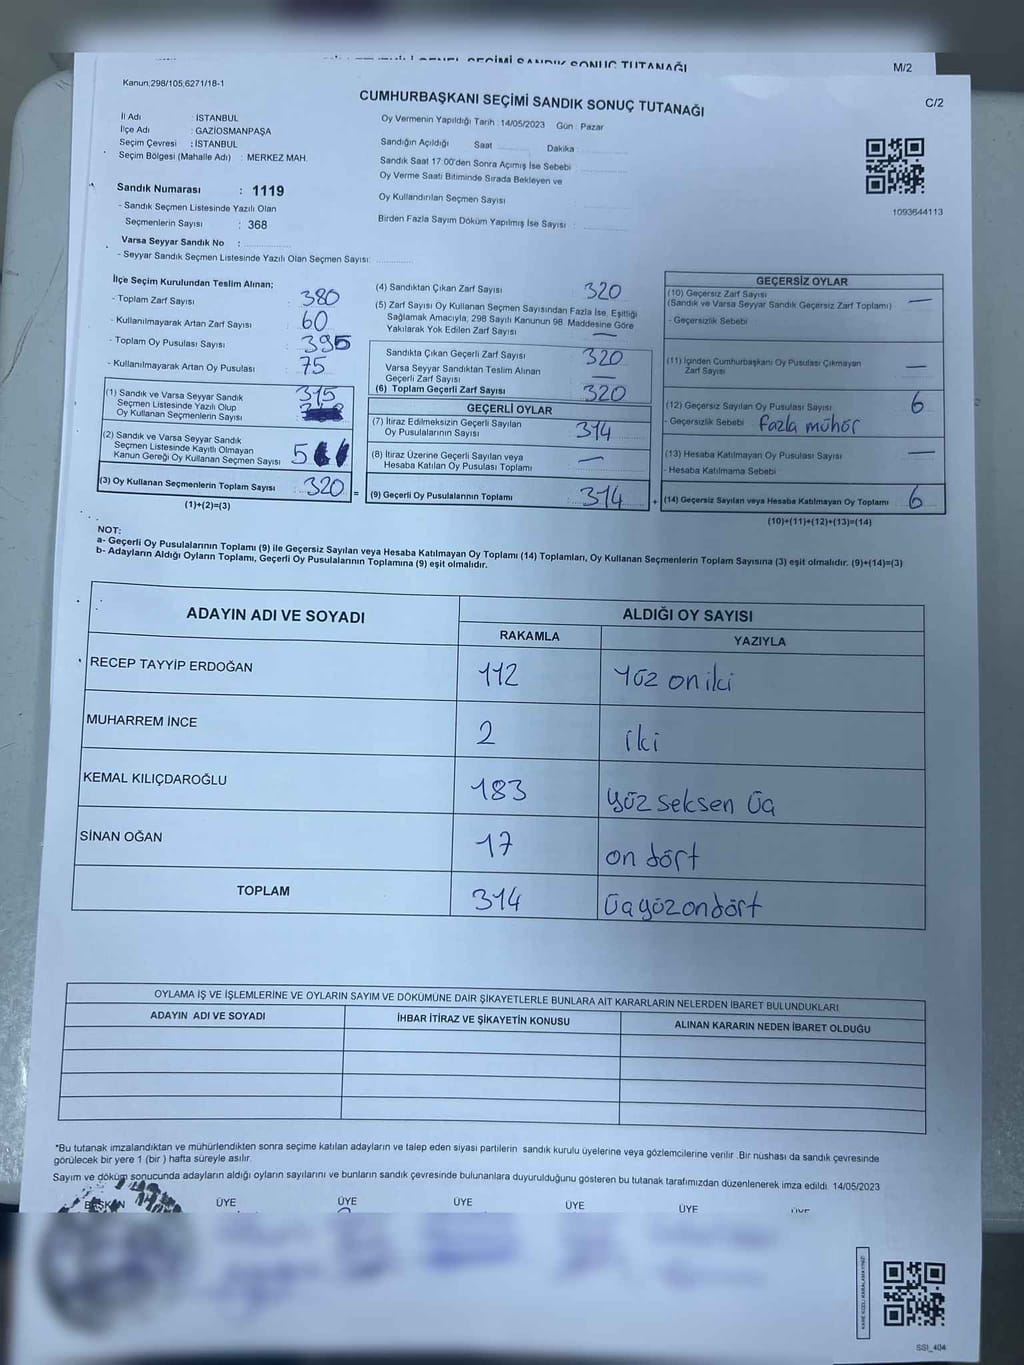 M/2
Kanun;298/105,6271/18-1
CUMHURBAŞKANI SEÇİMİ SANDIK SONUÇ TUTANAĞI
C/2
İl Adı : İSTANBUL
İlçe Adı : GAZİOSMANPAŞA
Seçim Çevresi : İSTANBUL
Seçim Bölgesi (Mahalle Adı) : MERKEZ MAH.
Oy Vermenin Yapıldığı Tarih : 14/05/2023 Gün : Pazar
Sandığın Açıldığı Saat Dakika
Sandık Saat 17:00'den Sonra Açımış İse Sebebi
Oy Verme Saati Bitiminde Sırada Bekleyen ve
Oy Kullandırılan Seçmen Sayısı
Birden Fazla Sayım Döküm Yapılmış İse Sayısı :
1093644113
Sandık Numarası : 1119
- Sandık Seçmen Listesinde Yazılı Olan
Seçmenlerin Sayısı : 368
Varsa Seyyar Sandık No :
- Seyyar Sandık Seçmen Listesinde Yazılı Olan Seçmen Sayısı:
İlçe Seçim Kurulundan Teslim Alınan;
- Toplam Zarf Sayısı : 380
- Kullanılmayarak Artan Zarf Sayısı : 60
- Toplam Oy Pusulası Sayısı : 395
- Kullanılmayarak Artan Oy Pusulası : 75
(1) Sandık ve Varsa Seyyar Sandık
Seçmen Listesinde Yazılı Olup
Oy Kullanan Seçmenlerin Sayısı : 315
(2) Sandık ve Varsa Seyyar Sandık
Seçmen Listesinde Kayıtlı Olmayan
Kanun Gereği Oy Kullanan Seçmen Sayısı 5
(3) Oy Kullanan Seçmenlerin Toplam Sayısı : 320
(1)+(2)=(3)
(4) Sandıktan Çıkan Zarf Sayısı : 320
(5) Zarf Sayısı Oy Kullanan Seçmen Sayısından Fazla İse, Eşitliği
Sağlamak Amacıyla; 298 Sayılı Kanunun 98. Maddesine Göre
Yakılarak Yok Edilen Zarf Sayısı : —
Sandıkta Çıkan Geçerli Zarf Sayısı : 320
Varsa Seyyar Sandıktan Teslim Alınan
Geçerli Zarf Sayısı : —
(6) Toplam Geçerli Zarf Sayısı : 320
GEÇERLİ OYLAR
(7) İtiraz Edilmeksizin Geçerli Sayılan
Oy Pusulalarının Sayısı : 314
(8) İtiraz Üzerine Geçerli Sayılan veya
Hesaba Katılan Oy Pusulası Toplamı : —
= (9) Geçerli Oy Pusulalarının Toplamı : 314
GEÇERSİZ OYLAR
(10) Geçersiz Zarf Sayısı
(Sandık ve Varsa Seyyar Sandık Geçersiz Zarf Toplamı) —
- Geçersizlik Sebebi :
(11) İçinden Cumhurbaşkanı Oy Pusulası Çıkmayan
Zarf Sayısı : —
(12) Geçersiz Sayılan Oy Pusulası Sayısı : 6
- Geçersizlik Sebebi : fazla mühür
(13) Hesaba Katılmayan Oy Pusulası Sayısı : —
- Hesaba Katılmama Sebebi :
+ (14) Geçersiz Sayılan veya Hesaba Katılmayan Oy Toplamı : 6
(10)+(11)+(12)+(13)=(14)
NOT:
a- Geçerli Oy Pusulalarının Toplamı (9) ile Geçersiz Sayılan veya Hesaba Katılmayan Oy Toplamı (14) Toplamları, Oy Kullanan Seçmenlerin Toplam Sayısına (3) eşit olmalıdır. (9)+(14)=(3)
b- Adayların Aldığı Oyların Toplamı, Geçerli Oy Pusulalarının Toplamına (9) eşit olmalıdır.
ADAYIN ADI VE SOYADI
ALDIĞI OY SAYISI
RAKAMLA YAZIYLA
RECEP TAYYİP ERDOĞAN 112 Yüz on iki
MUHARREM İNCE 2 iki
KEMAL KILIÇDAROĞLU 183 yüz seksen üç
SİNAN OĞAN 17 on dört
TOPLAM 314 üçyüzondört
OYLAMA İŞ VE İŞLEMLERİNE VE OYLARIN SAYIM VE DÖKÜMÜNE DAİR ŞİKAYETLERLE BUNLARA AİT KARARLARIN NELERDEN İBARET BULUNDUKLARI
ADAYIN ADI VE SOYADI İHBAR İTİRAZ VE ŞİKAYETİN KONUSU ALINAN KARARIN NEDEN İBARET OLDUĞU
*Bu tutanak imzalandıktan ve mühürlendikten sonra seçime katılan adayların ve talep eden siyasi partilerin sandık kurulu üyelerine veya gözlemcilerine verilir .Bir nüshası da sandık çevresinde
görülecek bir yere 1 (bir ) hafta süreyle asılır.
Sayım ve döküm sonucunda adayların aldığı oyların sayılarını ve bunların sandık çevresinde bulunanlara duyurulduğunu gösteren bu tutanak tarafımızdan düzenlenerek imza edildi. 14/05/2023
BAŞKAN ÜYE ÜYE ÜYE ÜYE ÜYE ÜYE
SSI_404